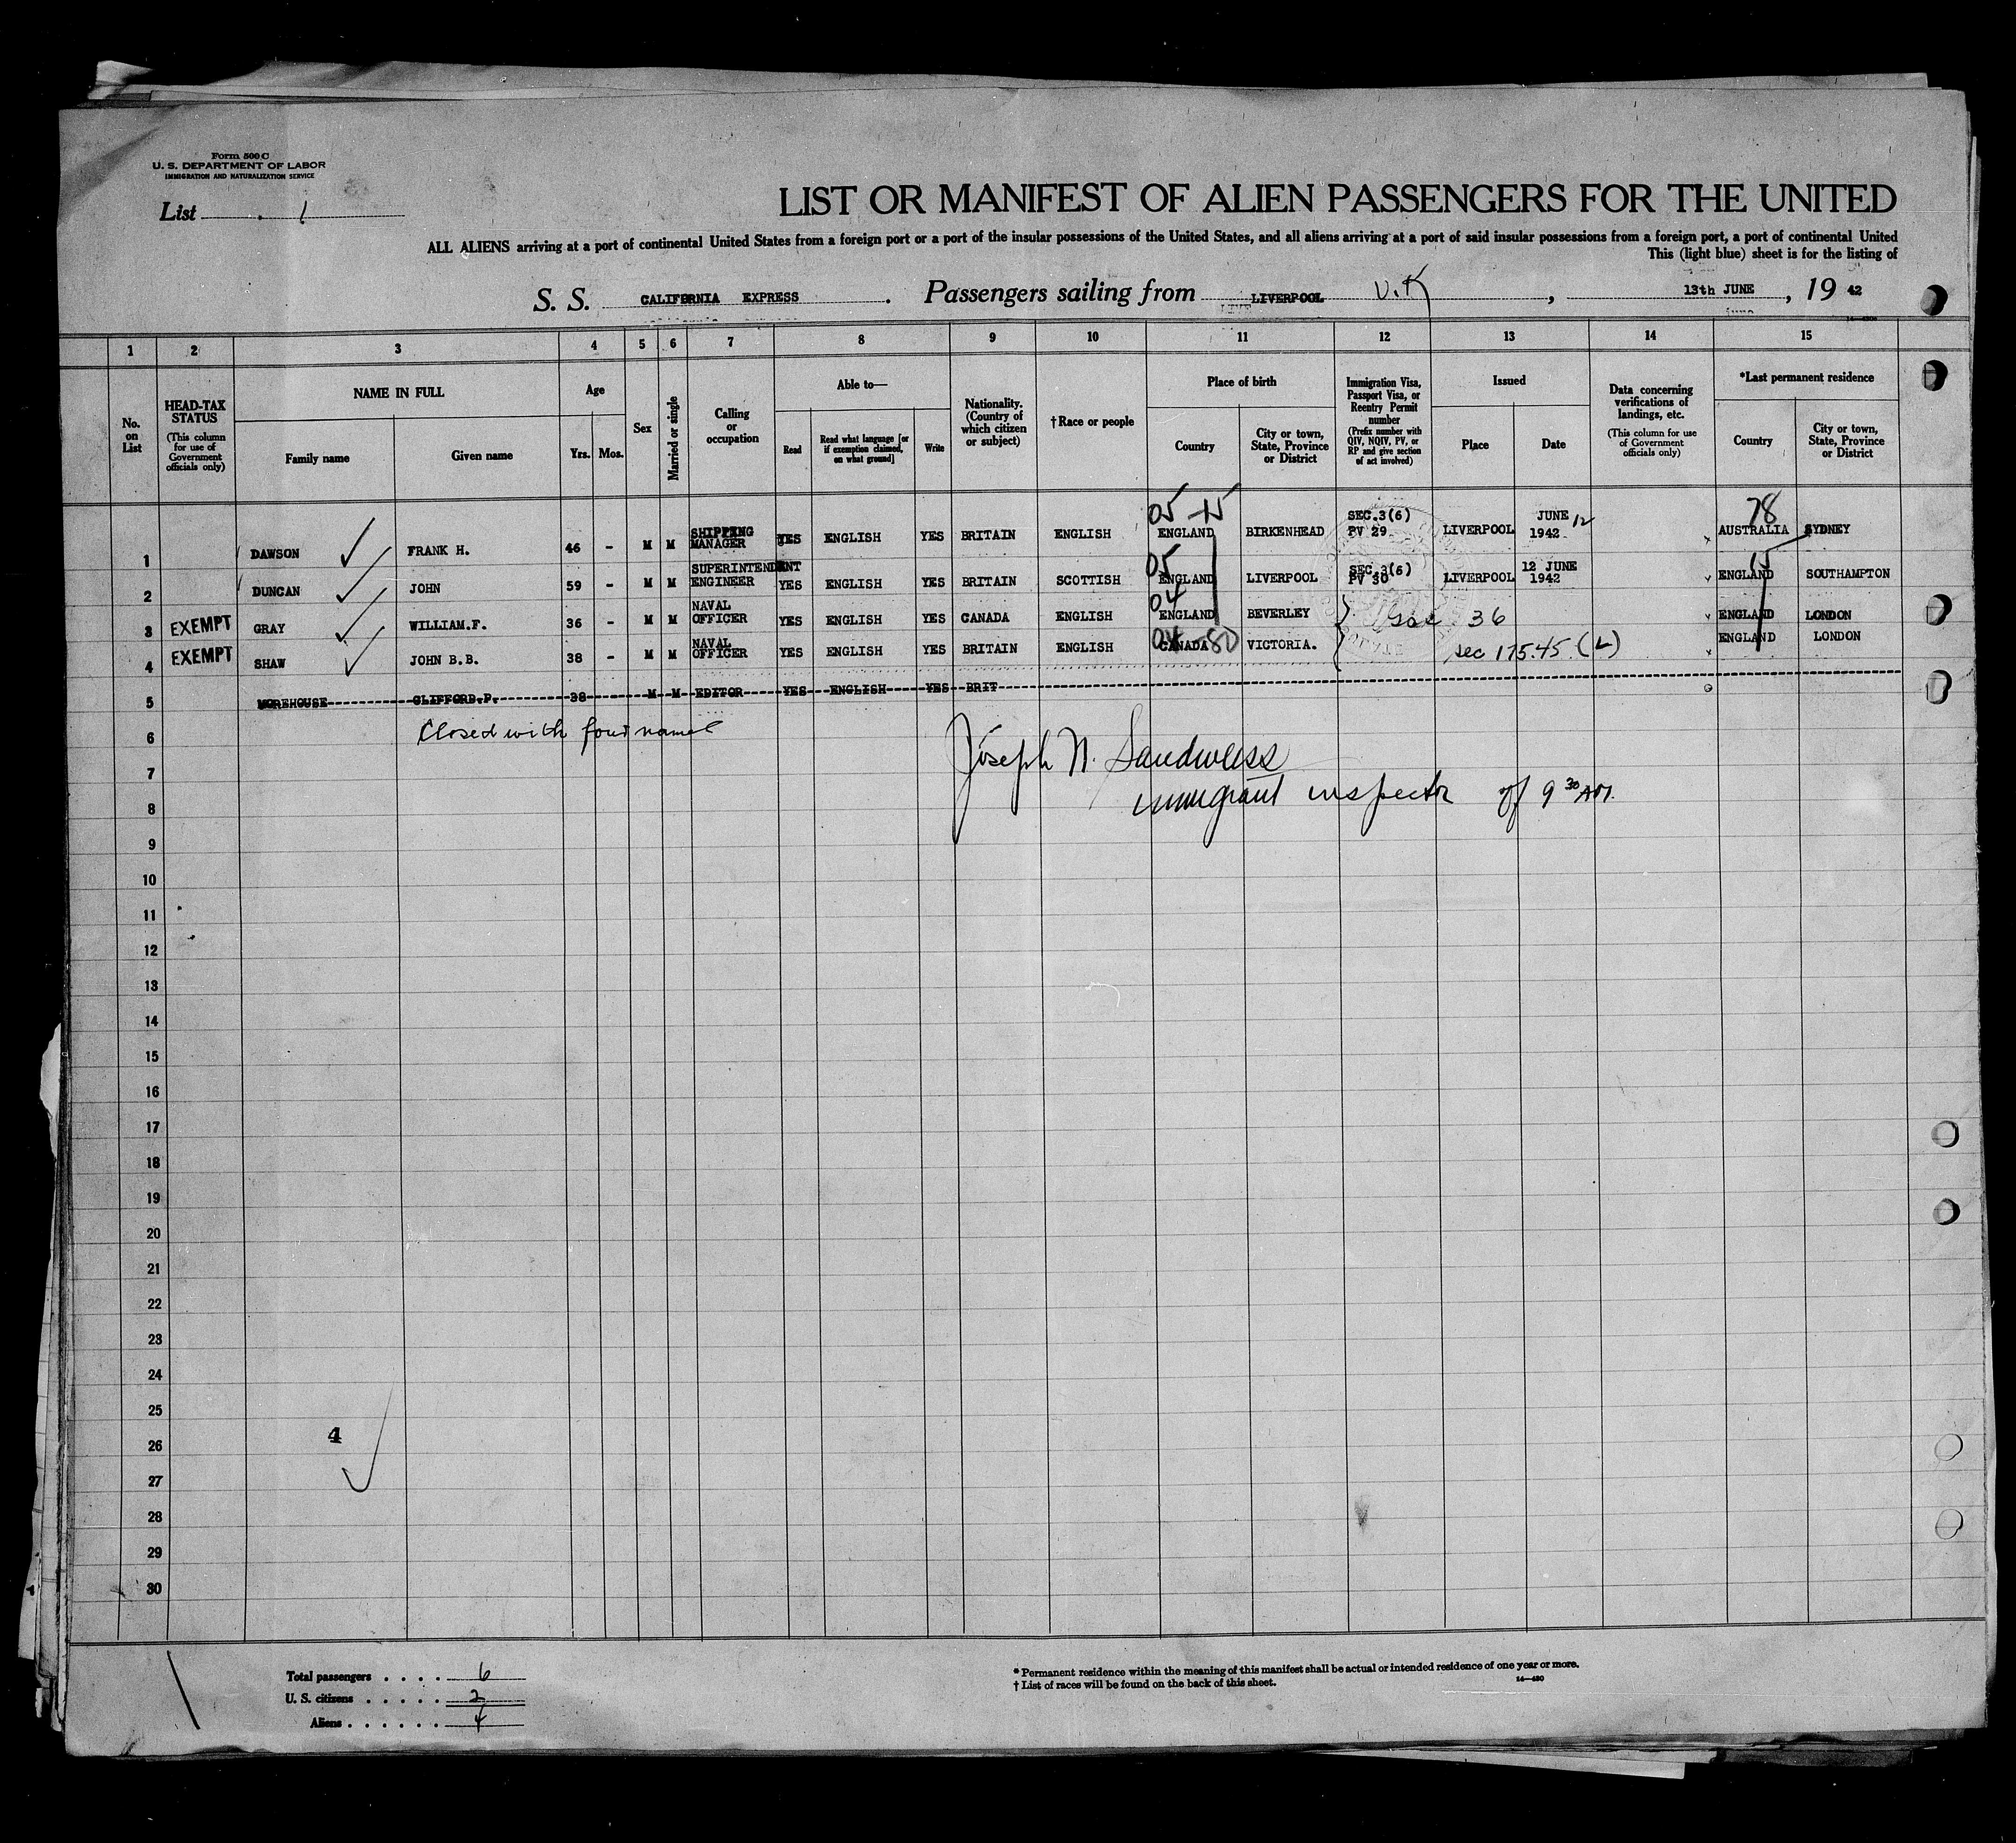 Form 500 C
U. S. DEPARTMENT OF LABOR
IMMIGRATION AND NATURALIZATION SERVICE
List 1
LIST OR MANIFEST OF ALIEN PASSENGERS FOR THE UNITED
ALL ALIENS arriving at a port of continental United States from a foreign port or a port of the insular possessions of the United States, and all aliens arriving at a port of said insular possessions from a foreign port, a port of continental United
This (light blue) sheet is for the listing of
S. S. CALIFORNIA EXPRESS . Passengers sailing from LIVERPOOL U.K , 13th JUNE , 19 42
1 2 3 4 5 6 7 8 9 10 11 12 13 14 15
No. on List
HEAD-TAX STATUS (This column for use of Government officials only)
NAME IN FULL
Family name Given name
Age
Yrs. Mos.
Sex
Married or single
Calling or occupation
Able to—
Read Read what language [or if exemption claimed, on what ground] Write
Nationality. (Country of which citizen or subject)
† Race or people
Place of birth
Country City or town, State, Province or District
Immigration Visa, Passport Visa, or Reentry Permit number (Prefix number with QIV, NQIV, PV, or RP and give section of act involved)
Issued
Place Date
Data concerning verifications of landings, etc. (This column for use of Government officials only)
*Last permanent residence
Country City or town, State, Province or District
05 15 78
1 DAWSON FRANK H. 46 - M M SHIPPING MANAGER YES ENGLISH YES BRITAIN ENGLISH ENGLAND BIRKENHEAD SEC.3(6) PV 29 LIVERPOOL JUNE 12 1942 AUSTRALIA SYDNEY
05 15
2 DUNCAN JOHN 59 - M M SUPERINTENDENT ENGINEER YES ENGLISH YES BRITAIN SCOTTISH ENGLAND LIVERPOOL SEC.3(6) PV 30 LIVERPOOL 12 JUNE 1942 ENGLAND SOUTHAMPTON
04
3 EXEMPT GRAY WILLIAM.F. 36 - M M NAVAL OFFICER YES ENGLISH YES CANADA ENGLISH ENGLAND BEVERLEY 36 ENGLAND LONDON
4 EXEMPT SHAW JOHN B.B. 38 - M M NAVAL OFFICER YES ENGLISH YES BRITAIN ENGLISH CANADA 80 VICTORIA. sec 175.45 (L) ENGLAND LONDON
5 MOREHOUSE CLIFFORD.P. 38 M M EDITOR YES ENGLISH YES BRIT
6 Closed with four names
Joseph N. Sandweiss
7
immigrant inspector of 9 30 AM.
8
9
10
11
12
13
14
15
16
17
18
19
20
21
22
23
24
25
26 4
27
28
29
30
Total passengers . . . . 6
U. S. citizens . . . . . 2
Aliens . . . . . . 4
* Permanent residence within the meaning of this manifest shall be actual or intended residence of one year or more.
† List of races will be found on the back of this sheet.
14—430